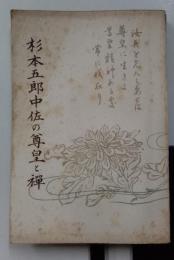 汝我を見んと要せば
尊皇に生きよ
尊皇精神ある處
常に我在り
杉本五郎中佐の尊皇と禪